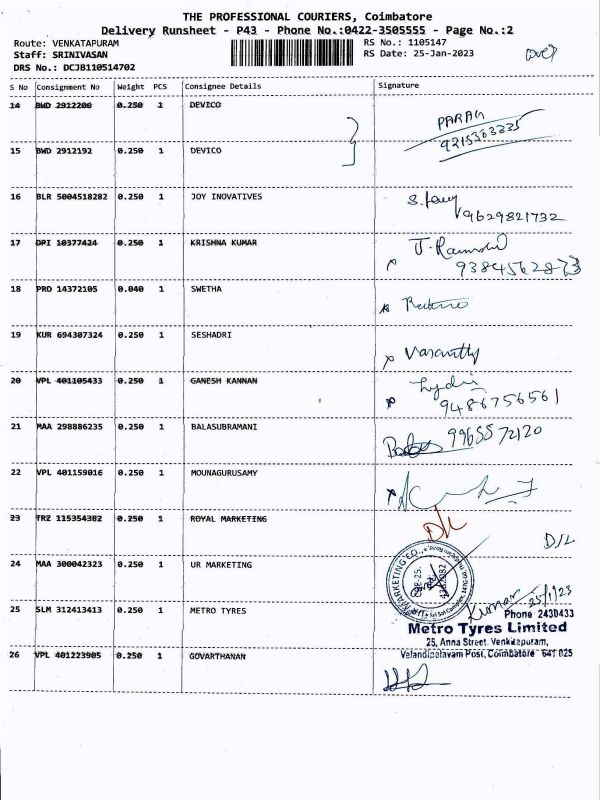 THE PROFESSIONAL COURIERS, Coimbatore
Delivery Runsheet - P43 - Phone No.:0422-3505555 - Page No.:2
Route: VENKATAPURAM RS No.: 1105147
Staff: SRINIVASAN RS Date: 25-Jan-2023
DRS No.: DCJB110514702
S No Consignment No Weight PCS Consignee Details Signature
14 BWD 2912206 0.250 1 DEVICO
PARAG
9215363335
15 BWD 2912192 0.250 1 DEVICO
16 BLR 5004518282 0.250 1 JOY INOVATIVES
9629821732
17 DPI 10377424 0.250 1 KRISHNA KUMAR
9384562873
18 PRO 14372105 0.040 1 SWETHA
19 KUR 694307324 0.250 1 SESHADRI
20 VPL 401105433 0.250 1 GANESH KANNAN
9486756561
21 MAA 298886235 0.250 1 BALASUBRAMANI
9965572120
22 VPL 401159016 0.250 1 MOUNAGURUSAMY
23 TRZ 115354382 0.250 1 ROYAL MARKETING
D/L
24 MAA 300042323 0.250 1 UR MARKETING
MARKETING CO.,
25 SLM 312413413 0.250 1 METRO TYRES
Kumar 25/1/23
Phone 2430433
Metro Tyres Limited
25, Anna Street, Venkitapuram,
Velandipalayam Post, Coimbatore 641 025
26 VPL 401223905 0.250 1 GOVARTHANAN